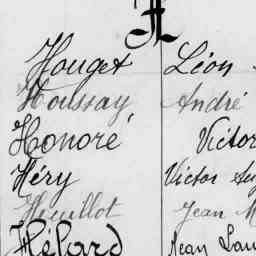 H
Houget Léon
Houssay André
Honoré Victor
Héry Victor Aug
Houillot Jean M
Hélard Jean Lou